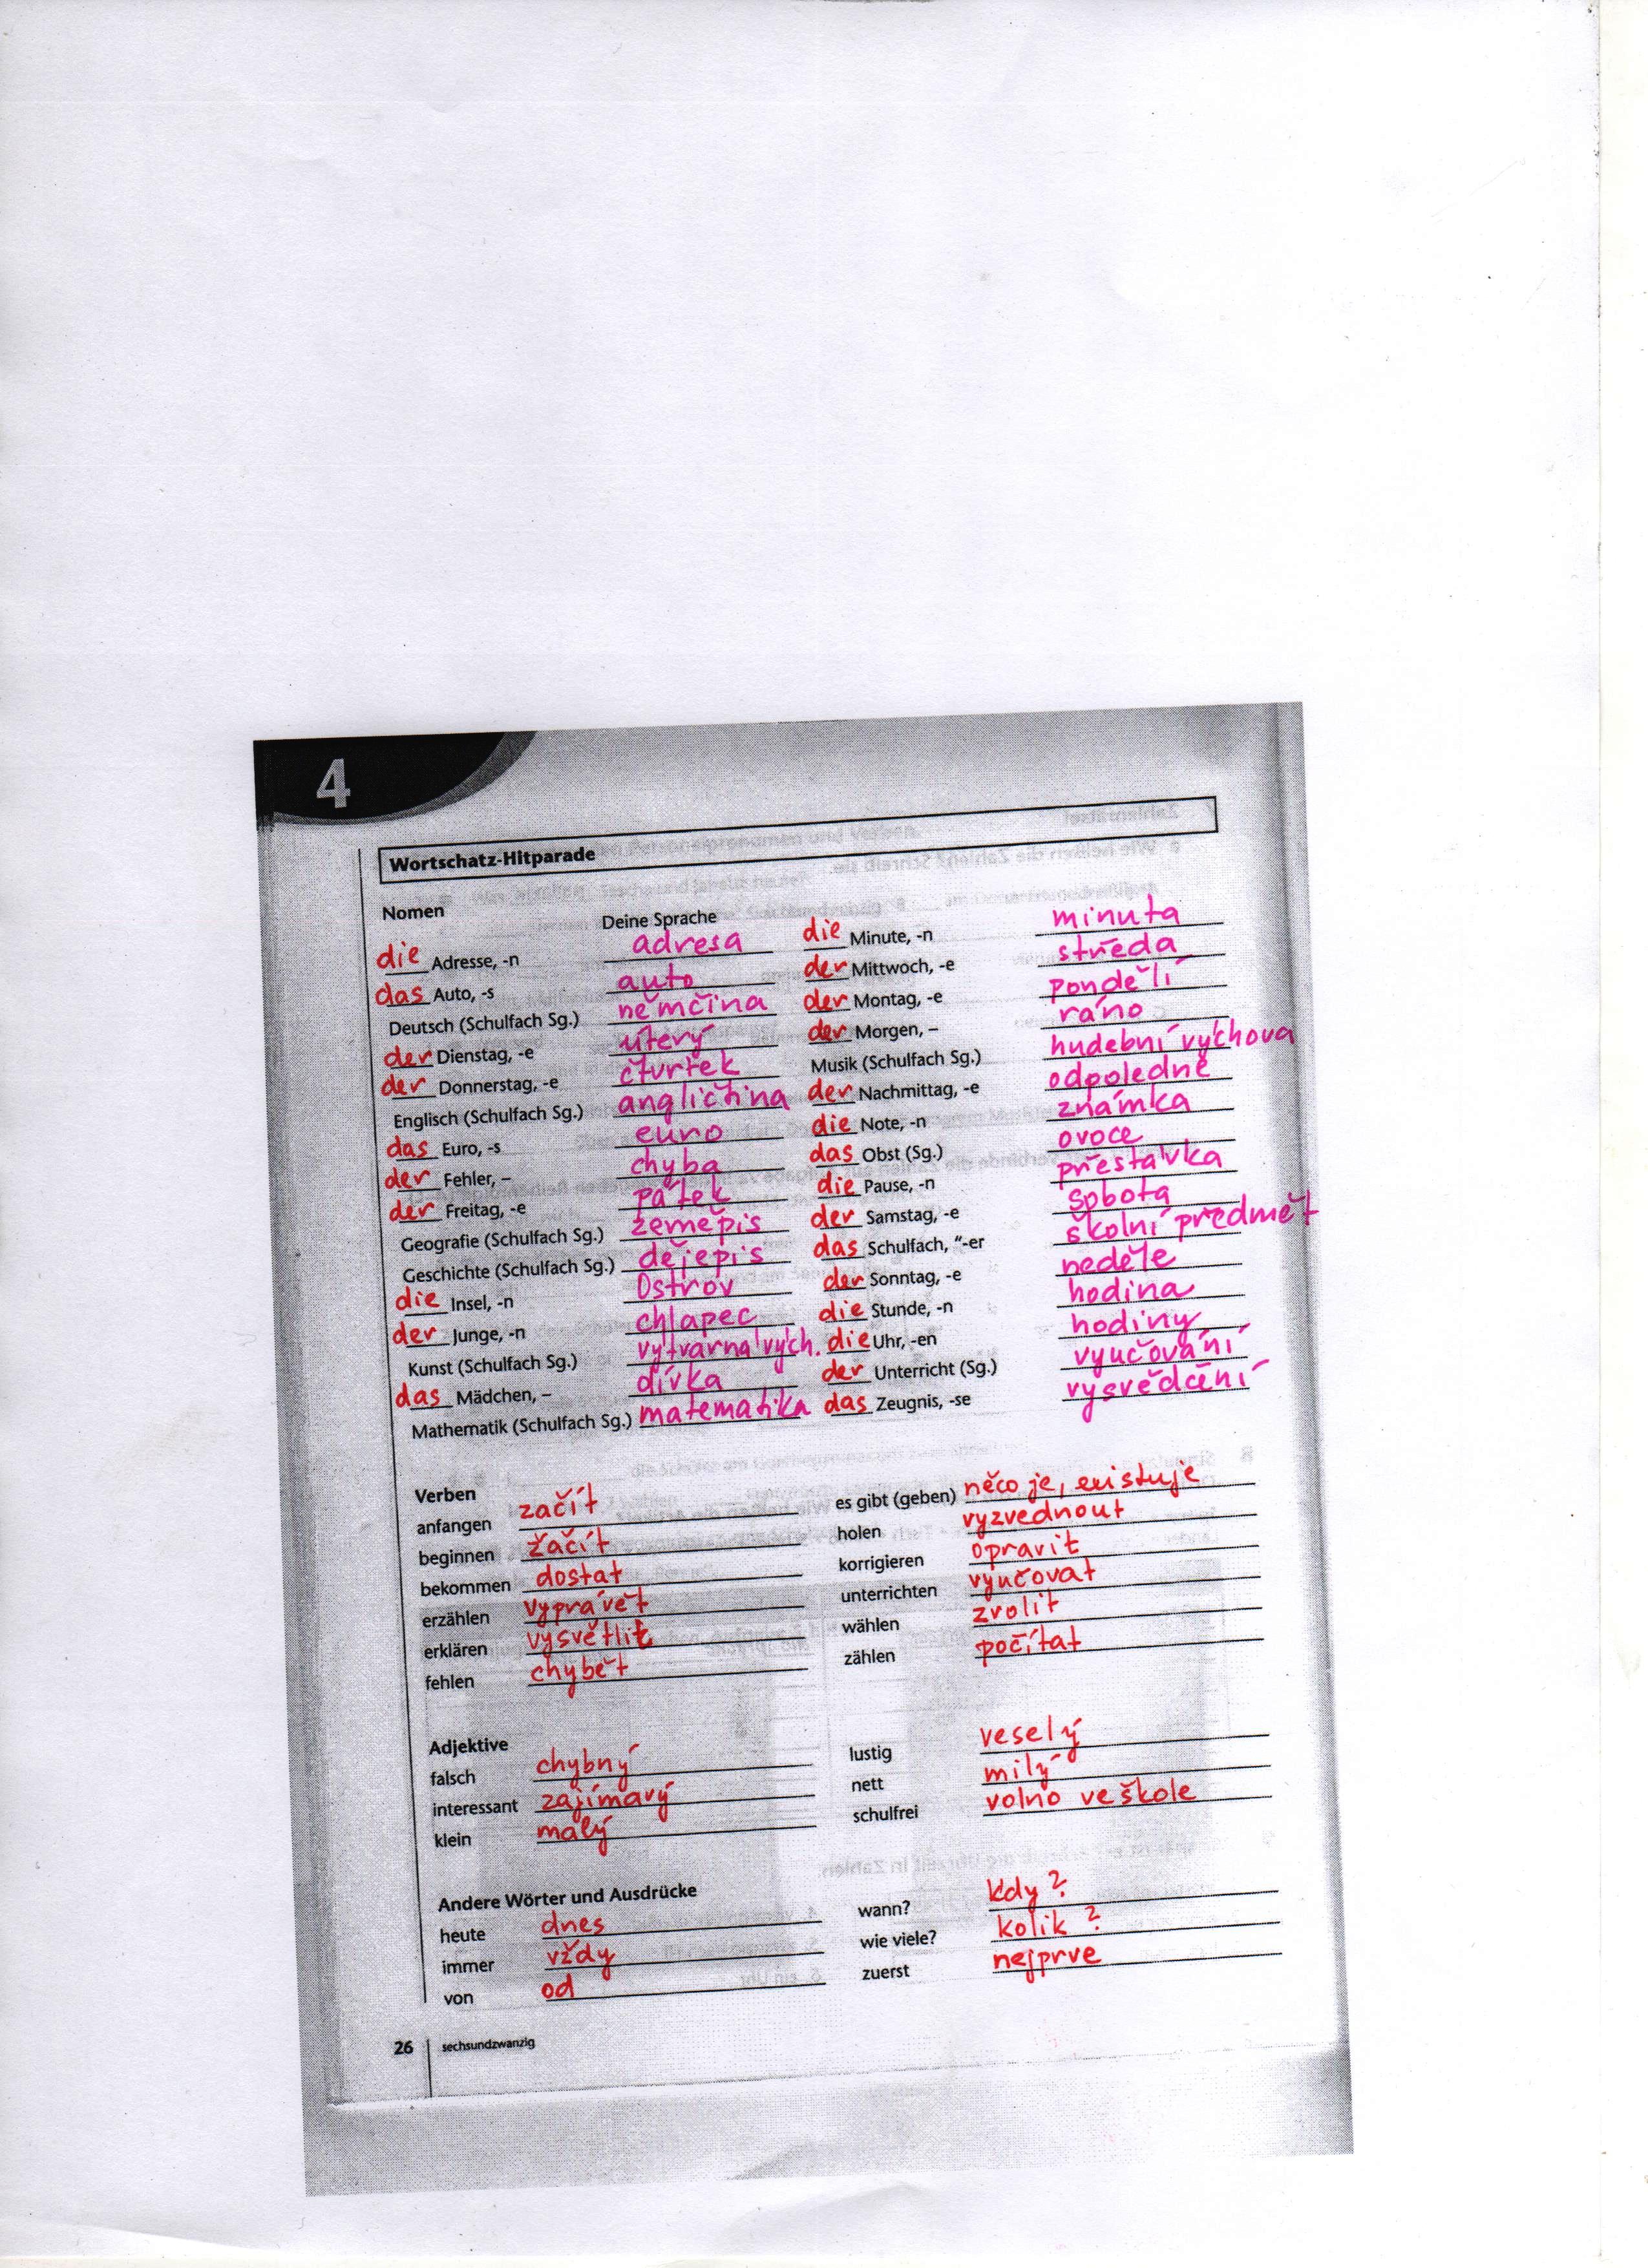 4
Wortschatz-Hitparade
Nomen
Deine Sprache
die Adresse, -n adresa
das Auto, -s auto
Deutsch (Schulfach Sg.) němčina
der Dienstag, -e úterý
der Donnerstag, -e čtvrtek
Englisch (Schulfach Sg.) angličtina
das Euro, -s euro
der Fehler, – chyba
der Freitag, -e pátek
Geografie (Schulfach Sg.) zeměpis
Geschichte (Schulfach Sg.) dějepis
die Insel, -n Ostrov
der Junge, -n chlapec
Kunst (Schulfach Sg.) výtvarná vých.
das Mädchen, – dívka
Mathematik (Schulfach Sg.) matematika
die Minute, -n minuta
der Mittwoch, -e středa
der Montag, -e pondělí
der Morgen, – ráno
Musik (Schulfach Sg.) hudební výchova
der Nachmittag, -e odpoledne
die Note, -n známka
das Obst (Sg.) ovoce
die Pause, -n přestávka
der Samstag, -e sobota
das Schulfach, "-er školní předmět
der Sonntag, -e neděle
die Stunde, -n hodina
die Uhr, -en hodiny
der Unterricht (Sg.) vyučování
das Zeugnis, -se vysvědčení
Verben
anfangen začít
beginnen začít
bekommen dostat
erzählen vyprávět
erklären vysvětlit
fehlen chybět
es gibt (geben) něco je, existuje
holen vyzvednout
korrigieren opravit
unterrichten vyučovat
wählen zvolit
zählen počítat
Adjektive
falsch chybný
interessant zajímavý
klein malý
lustig veselý
nett milý
schulfrei volno ve škole
Andere Wörter und Ausdrücke
heute dnes
immer vždy
von od
wann? kdy?
wie viele? kolik?
zuerst nejprve
26 sechsundzwanzig